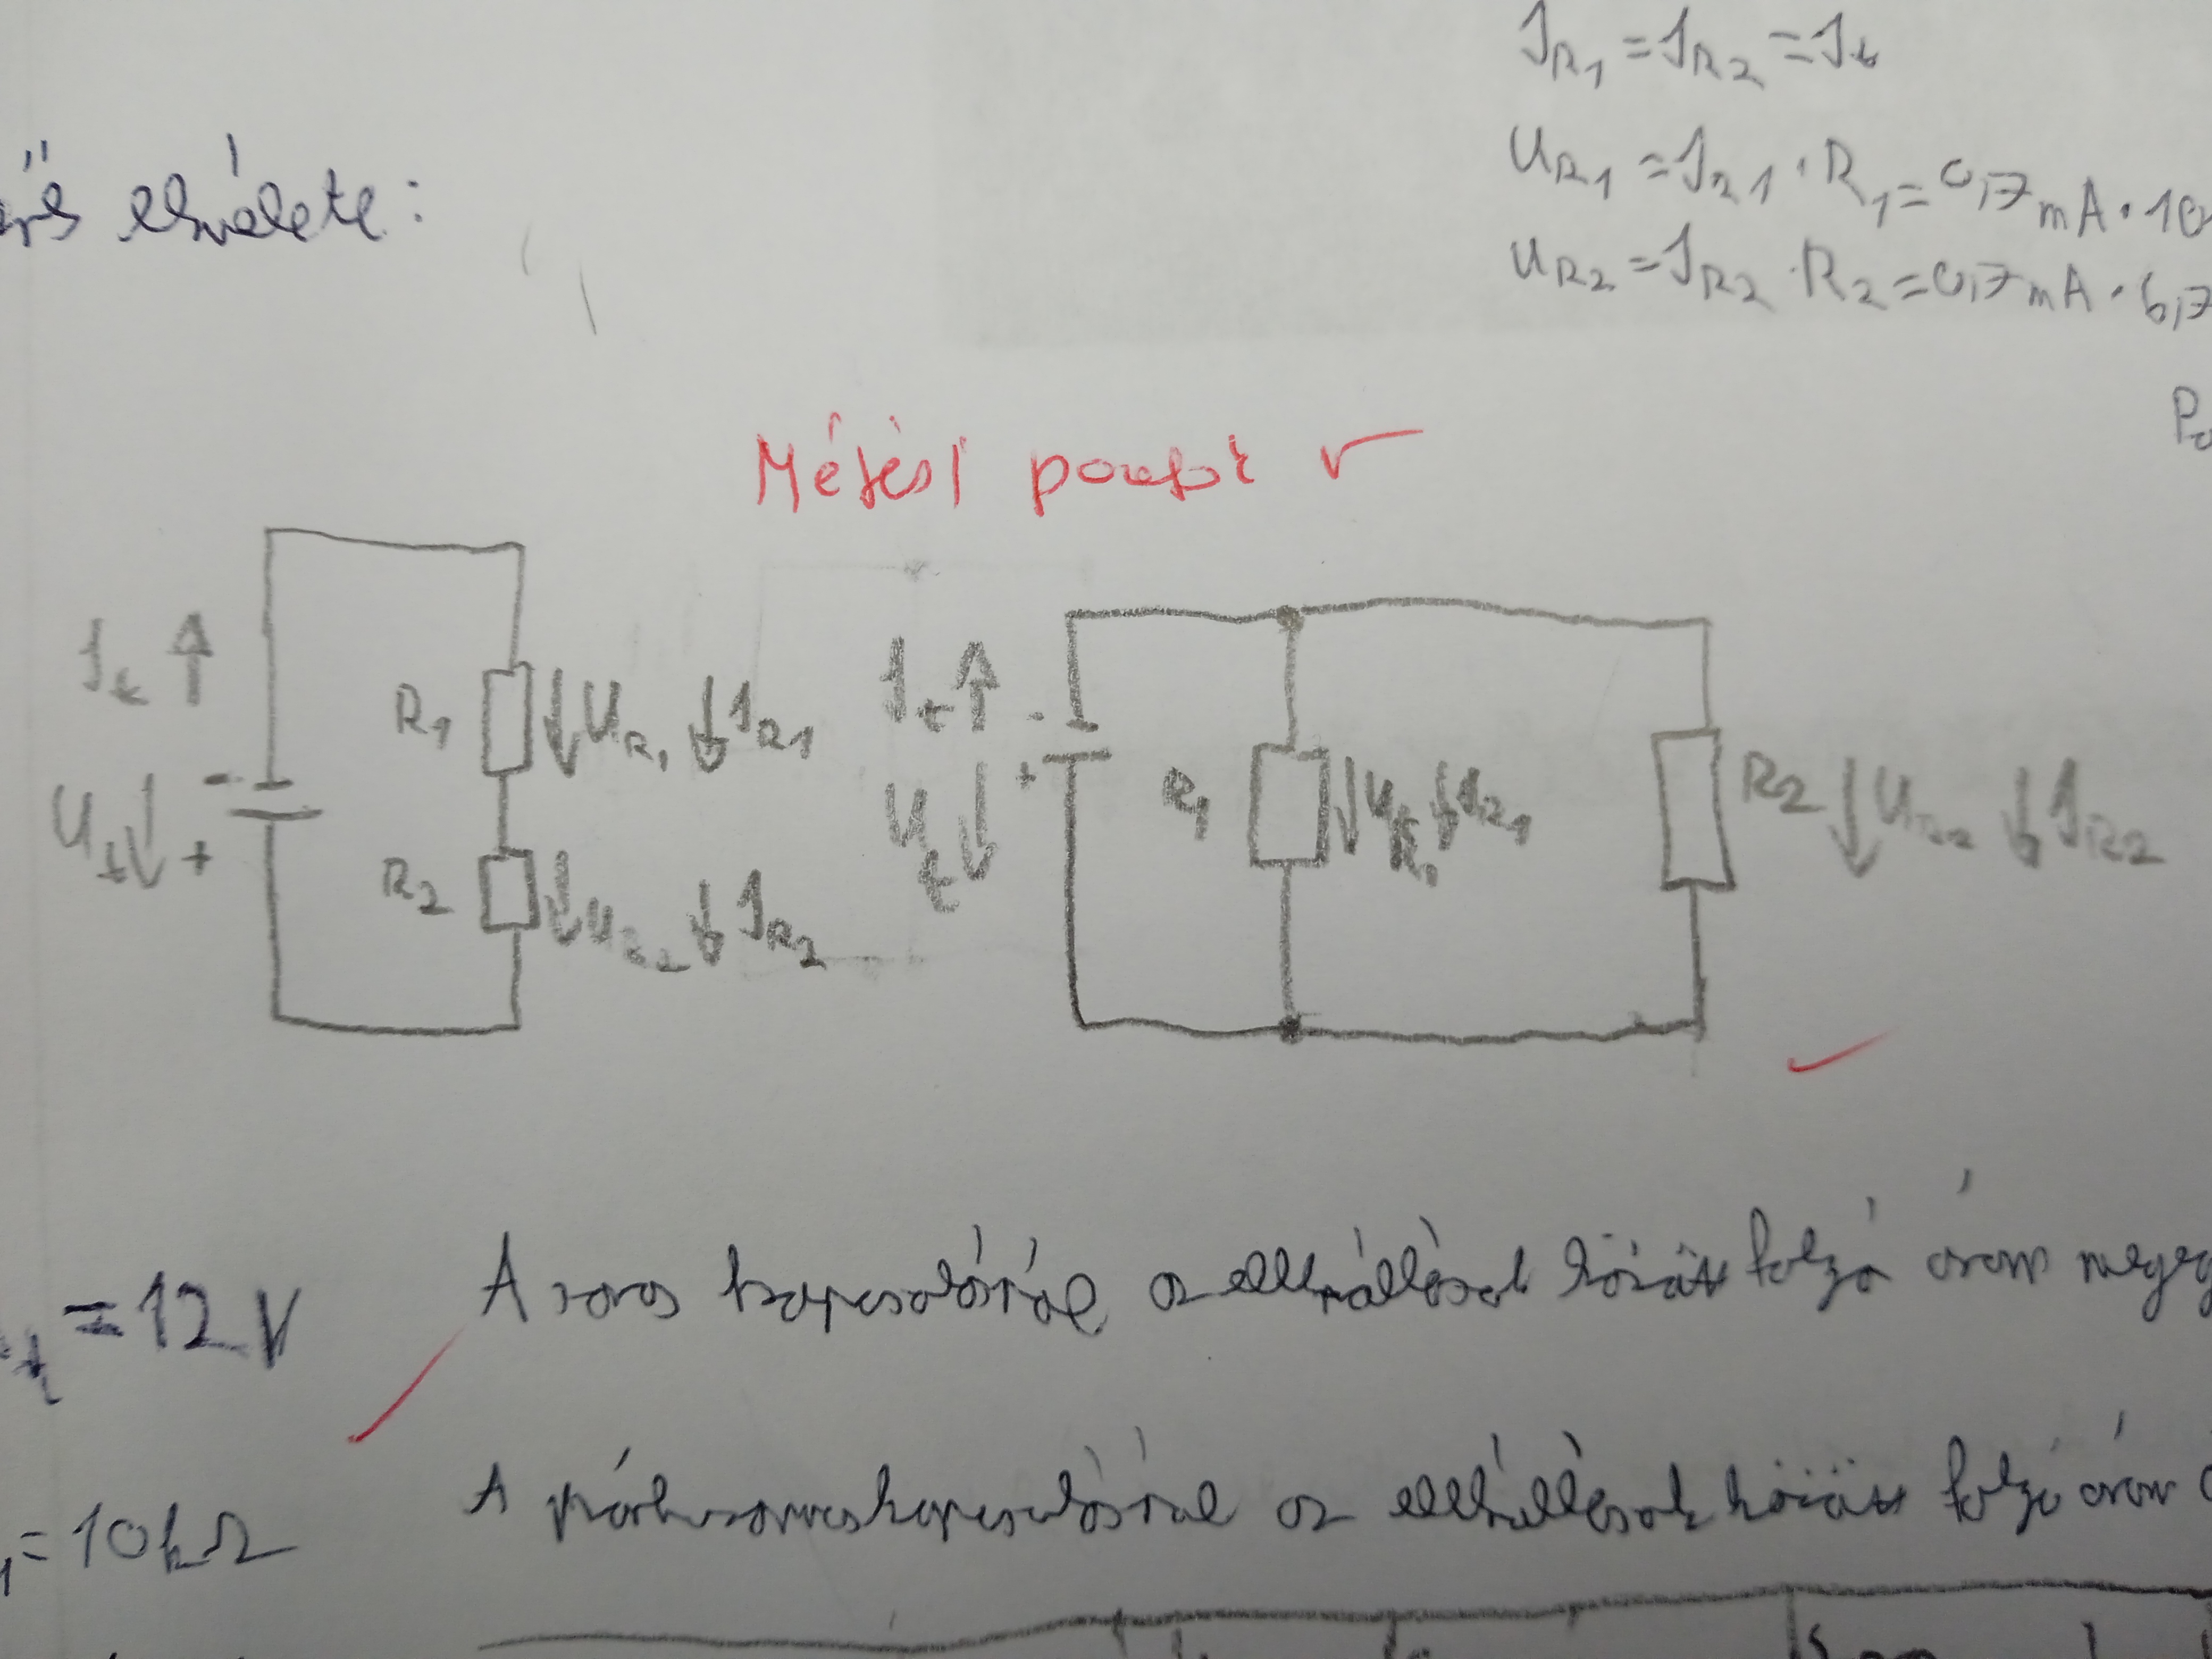 I_R1 = I_R2 = I_t
U_R1 = I_R1 · R_1 = 0,7 mA · 10
U_R2 = I_R2 · R_2 = 0,7 mA · 6,7
elmélete:
Mérési
I_t
R_1 U_R1 I_R1
U_t - +
R_2 U_R2 I_R2
I_t - +
U_t
R_1 U_R1 I_R1
R_2 U_R2 I_R2
= 12 V
A soros kapcsolásnál az ellenállások között folyó áram
= 10 kΩ
A párhuzamos kapcsolásnál az ellenállások között folyó áram